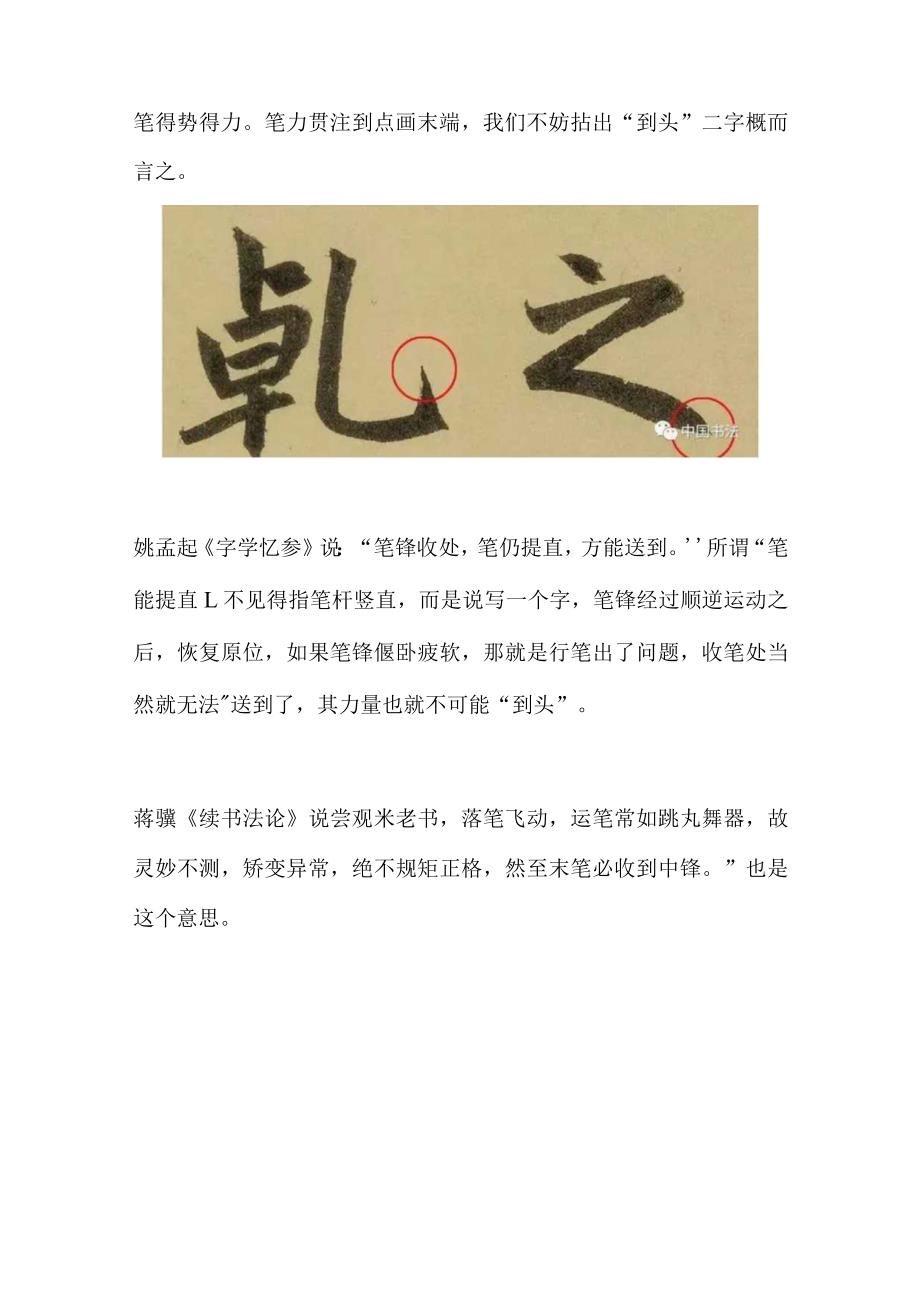 笔得势得力。笔力贯注到点画末端，我们不妨拈出“到头”二字概而
言之。
乹 之
中国书法
姚孟起《字学忆参》说：“笔锋收处，笔仍提直，方能送到。''所谓“笔
能提直L不见得指笔杆竖直，而是说写一个字，笔锋经过顺逆运动之
后，恢复原位，如果笔锋偃卧疲软，那就是行笔出了问题，收笔处当
然就无法"送到了，其力量也就不可能“到头”。
蒋骥《续书法论》说尝观米老书，落笔飞动，运笔常如跳丸舞器，故
灵妙不测，矫变异常，绝不规矩正格，然至末笔必收到中锋。”也是
这个意思。